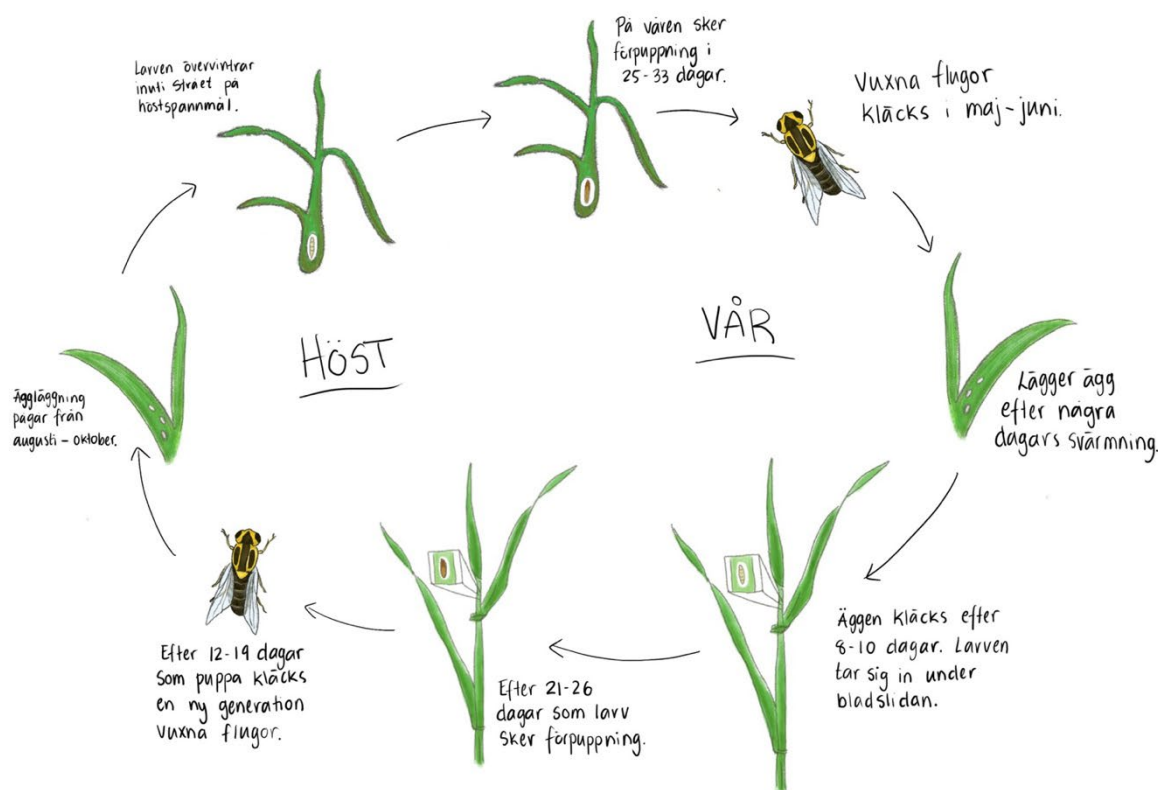 Larven övervintrar
inuti strået på
höstspannmål.
På våren sker
förpuppning i
25-33 dagar.
Vuxna flugor
kläcks i maj-juni.
Lägger ägg
efter några
dagars svärmning.
Äggen kläcks efter
8-10 dagar. Larven
tar sig in under
bladslidan.
Efter 21-26
dagar som larv
sker förpuppning.
Efter 12-19 dagar
som puppa kläcks
en ny generation
vuxna flugor.
Äggläggning
pågår från
augusti - oktober.
HÖST
VÅR